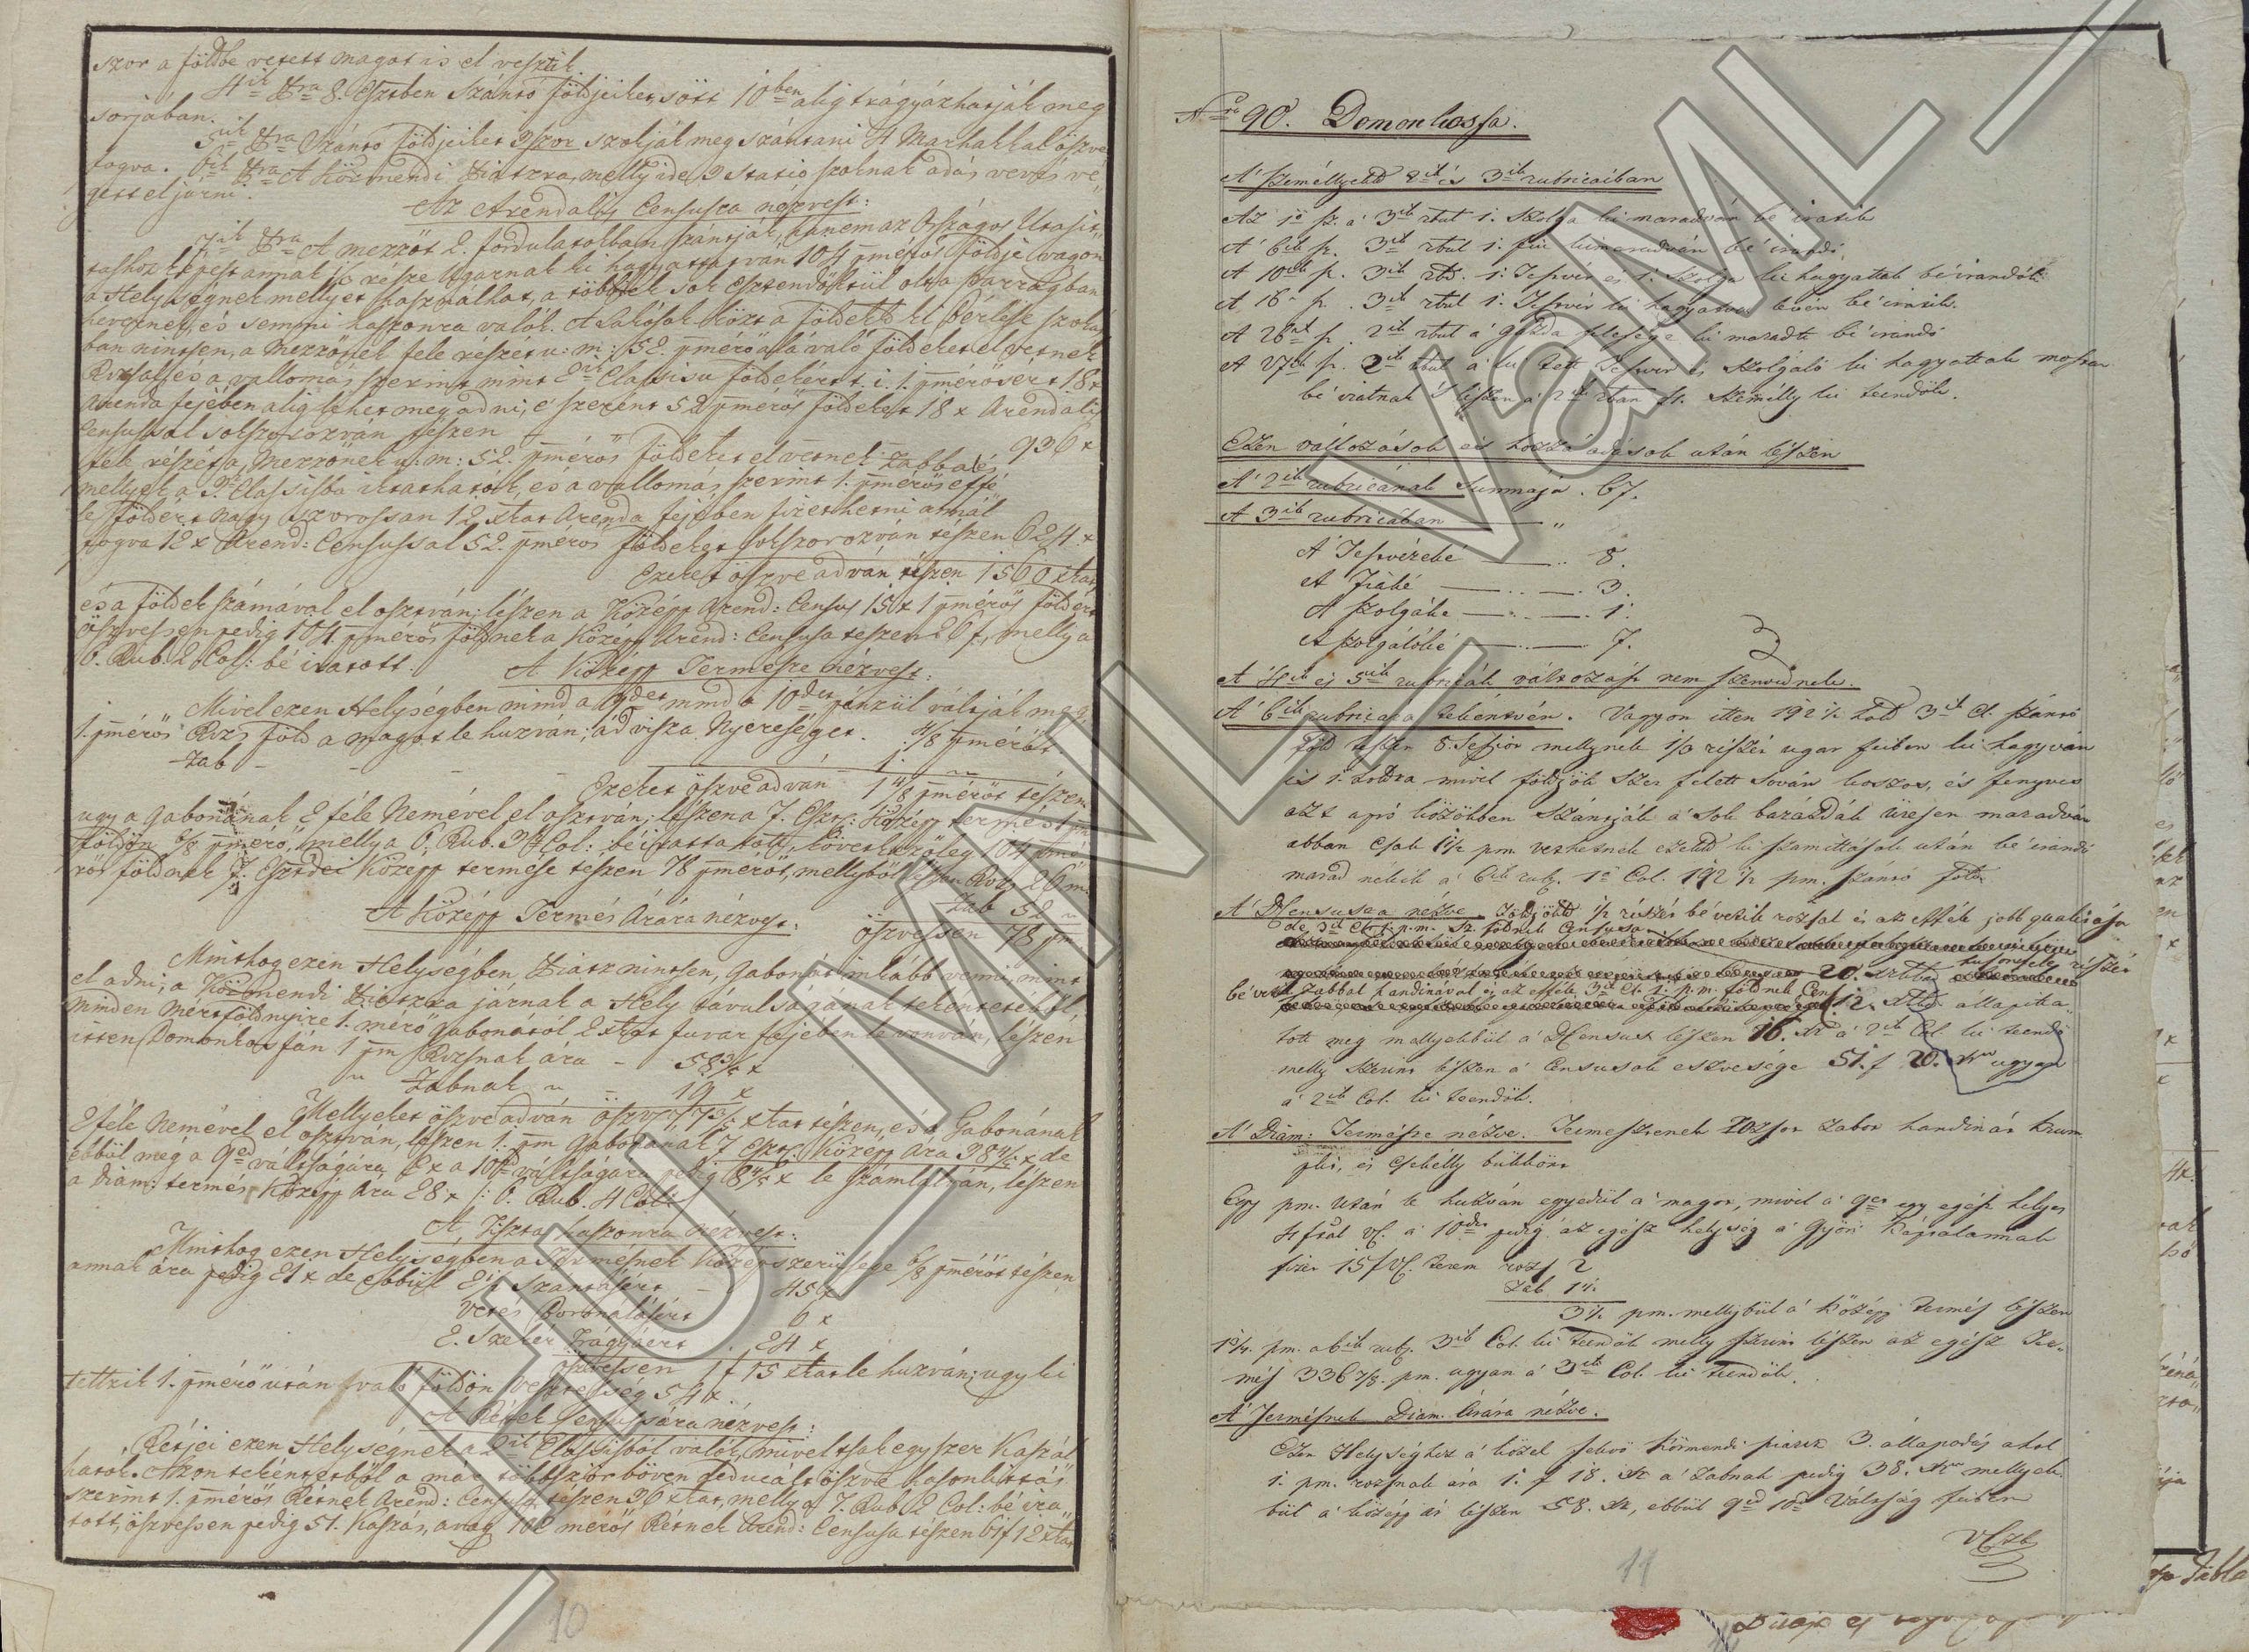 szor a földbe vetett magot is el vesztik
4ik Xra 8. Esztben Szántó földjeiket, sött 10ben alig trágyázhatják meg
sorjában.
5ik Xra Szántó földjeiket 3szor szokják meg szántani 4 Marhákkal öszve
fogva. 6ik Xra A Körmendi Piatzra, melly ide 3 statió szoknak adás vevés vé,,
gett eljárni.
Az Arendalis Censusra nézvest:
7ik Xra A mezzőt 2. fordulatokban szántják, hanem az Országos Utasit,,
táshoz képest annak 1/3 része Ugarnak ki hagyattatván 104 pmérős földje vagyon
a Helységnek mellyet használhat, a többiek sok esztendőktül olta parragban
hevernek, és semmi haszonra valók. A Lakósok közt a földekk ki bérlése szoká,,
ban nintsen, a Mezzőnek fele részét u: m: 52. pmérő alá való földeket el vetnek
Rozsal, és a vallomás szerint mint 2ik Classisu földekért t. i. 1. pmérősert 18x
Arenda fejében alig lehet meg adni, e szerént 52 pmérős földeket 18 x Arendalis
Censussal sokszorozván tészen 936 x
fele részét a Mezzőnek u: m: 52. pmérős földeket el vetnek Zabbal és
mellyek a 3. Classisba iktathatók, és a vallomás szerint 1. pmérős effé
le földért nagy szorossan 12 xkat Arenda fejében fizethetni annál
fogva 12 x Arend: Censussal 52. pmérős földeket sokszorozván tészen 624 x
Ezeket öszve adván tészen 1560 xkat
és a földek számával el osztván; lészen a Közép Arend: Census 15x 1 pmérős földért
öszvessen pedig 104. pmérős földnek a Közép Arend: Censusa tészen 26 f, melly a
6. Rub. 2 Col: bé iratott.
A Középp Termésre nézvest:
Mivel ezen Helységben mind a 9det mind a 10det pénzül váltják meg,
1. pmérős Rozs föld a magot le huzván; ád vissza Nyereséget. 4/8 pmérőt.
Zab – – – – 1. „
Ezeket öszve adván 1 4/8 pmérőt tészen
ugy a gabonának 2 féle Nemével el osztván; lészen a 7. Eszt: Középp termést 1 pm
földön 6/8 pmérő, melly a 6. Rub. 3ik Col: béirattatott, következőleg 104 pmé
rős földnek 7. Esztdei Középp termése tészen 78 pmérőt, mellyből lészen Rozs 26 pm.
Zab 52 „
A Középp Termés Arára nézvest: öszvessen 78 pm.
Minthogy ezen Helységben Piatz nintsen, Gabonát inkább venni, mint
el adni; a Körmendi Piatzra járnak a Hely távulságának tekéntetéből
minden mértföldnyire 1. mérő gabonától 2 xkat fuvar fejében le vonván, lészen
itten Domonkosfán 1 pm Rozsnak ára – 58 3/5 x
„ Zabnak „ – 19 x
Mellyeket öszve adván öszv: 77 3/5 xkat tészen, és a Gabonának
2 féle Nemével el osztván, lészen 1. pm Gabonának 7 Eszt: Középp Ára 38 4/5 x de
ebbül még a 9ed váltságára 2 x a 10ed váltságára pedig 8 4/5 x le számlálván, lészen
a Diám: termés Középp Ára 28 x /: 6. Rub. 4 Col:/
A Tiszta haszonra nézvest:
Minthogy ezen Helységben a Termésnek Középszerüsége 6/8 pmérőt tészen
annak ára pedig 21 x de ebbül 2 1/2 Szántásért – 45 x
Vetés Boronálásért 6 x
2. Szeker Tragyaért . 24 x
öszvessen 1 f 15 xkat le huzván; ugy ki
tettzik 1. pmérő után való földön veszteség 54 x.
A Rétek Censussára nézvest:
Rétjei ezen Helységnek a 2ik Classisból valók, mivel tsak egyszer Kaszál
hatók. Azon tekéntetből a már többször bőven deducált öszve hasonlittás
szerint 1. pmérős Rétnek Arend: Censusa tészen 36 xkat, melly a 7. Rub 2 Col: bé ira,,
tott, öszvessen pedig 51. Kaszás, avag 102 mérős Rétnek Arend: Censusa tészen 61f 12 xkat
10
Nro 90. Domonkosfa.
A' Személlyekk 2ik és 3ik rubricáiban
Az 1ő sz. a' 3ik rbul 1. Szolga ki maradván bé iratik
A' 6ik sz. 3ik rbul 1. fiu kimaradván bé irandó.
A 10ik sz. 3ik rbl. 1. Testvér és 1. Szolga ki hagyattak béirandók
A 16ik sz. 3ik rbul 1. Testvér ki hagyatva lévén bé iratik.
A 26ik sz. 2ik rbul a' gazda felesége ki maradtt bé irandó
A 27ik sz. 2ik rbul a' ki tett Testvér és Szolgáló ki hagyattak mostan
bé iratnak 's lészen a' 2ik rban Személly ki teendők.
Ezen változások és hozzá adások után lészen
A' 2ik rubricának Summája . 67.
A 3ik rubricában „
A' Testvéreké 8.
A Fiaké 3.
A Szolgáke 1.
A Szolgálóké 7.
A 4ik és 5ik rubricák változást nem szenvednek.
A' 6ik rubricára tekéntvén. Vagyon itten 192 1/2 hold 3ik Cl. szántó
föld tészen 8. Sessiót mellynek 1/3 részei ugar fejben ki hagyván
és 1. holdra mivel földjök szer felett sován koszos, és fenyves
azt apró közökben szántják a' sok barázdák üresen maradván
abban csak 1 1/2 pm. vethetnek ezekk ki számittások után bé irandó
marad nékik a' 6ik rub. 1ő Col. 192 1/2 pm. szántó föld
A' Census nézve. Földjökk 1/2 részét bé vetik rozsal és az effélék jobb qualitása
de 3ik Cl. 1. p.m. sz. földnek Censussa 20. xrbul részét
bé vetik Zabbal handinával és az effélék 3ik Cl. 1. p.m. földnek Cens. 12. xrbl. állapitta
tott meg mellyekbül a' Census lészen 16. xr a' 2ik Col. ki teendő
melly szerint lészen a' Censusok eszvesége 51. f 20. xr ugyan
a' 2ik Col. ki teendők.
A' Diám: Termésre nézve. Termesztenek Rozsot zabot handinát krum
plit, és csekélly bükkönt
Egy pm. után le huzván egyedül a' magot, mivel a' 9et egy egész helyes
4 ftal vl. a' 10det pedig az egész helység a' Győri Káptalannak
fizet 15 f vl. terem rozs 2
Zab 1 1/2
3 1/2 pm. mellybül a' középp termés lészen
1 3/4. pm. a 6ik rub. 3ik Col. ki teendők melly szerint lészen az egész Ter.
més 336 7/8. pm. ugyan a' 3ik Col. ki teendők.
A' Termésnek Diam. Arára nézve.
Ezen Helységhez a' közel fekvő Körmendi piatz 3. állapodás ahol
1. pm. rozsnak ára 1. f 18. xr a' zabnak pedig 38. xr mellyek
bül a' középp ár lészen 58. xr, ebbül 9ed 10ed Váltság fejben
11